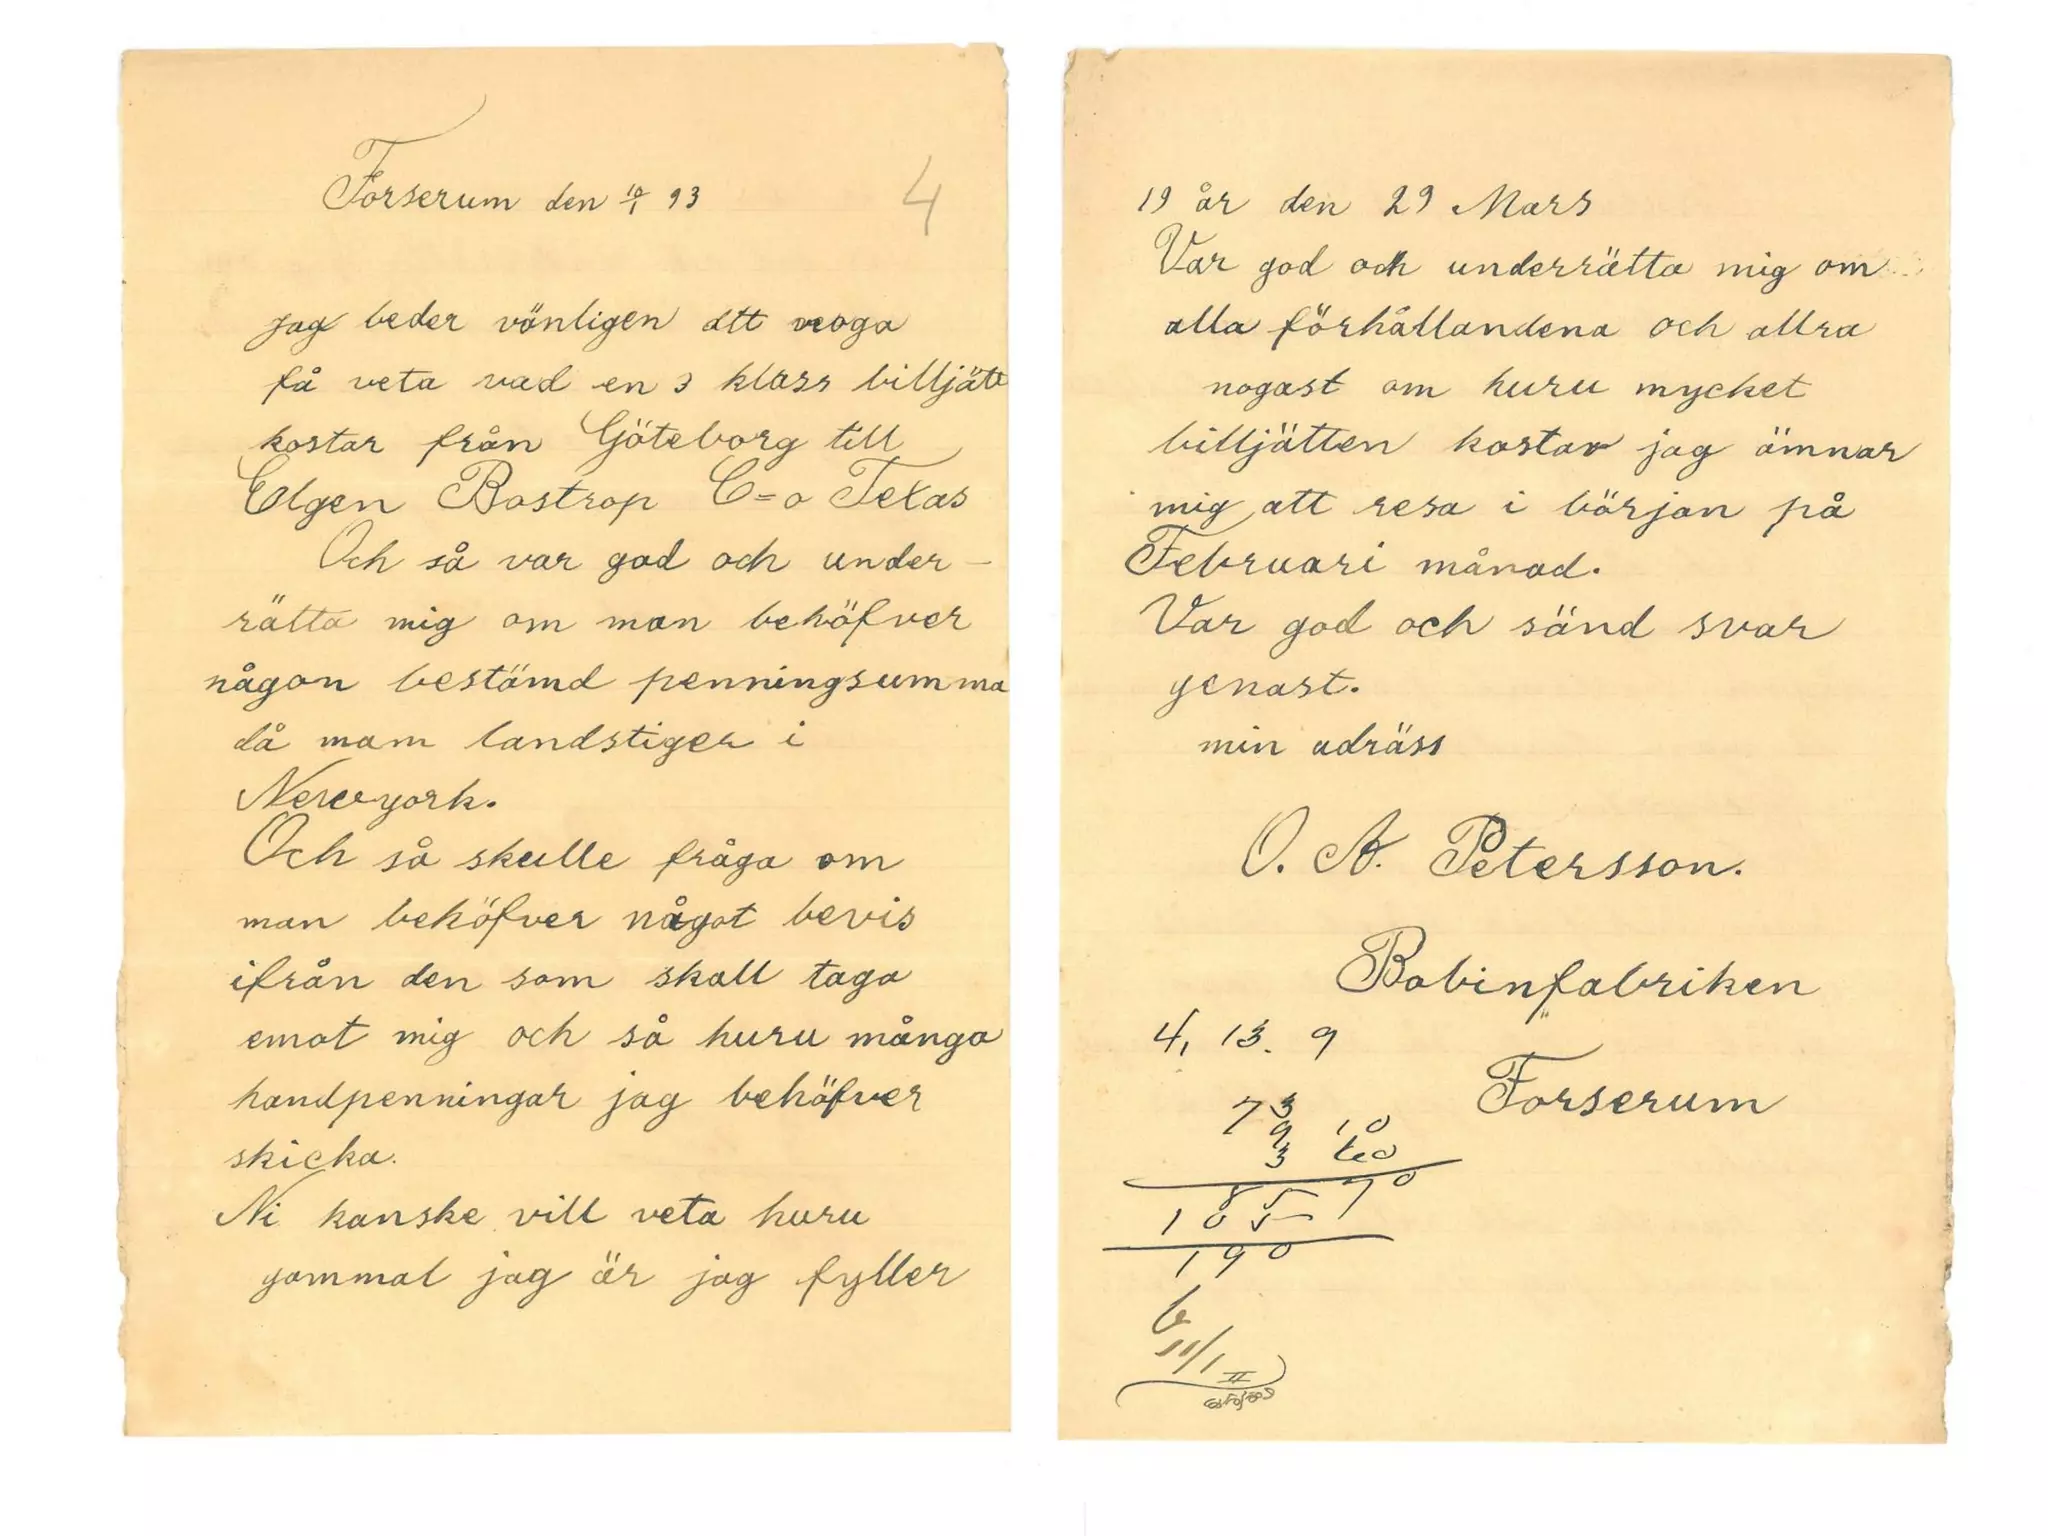 Forserum den 10/1 93
4
jag beder vänligen att
få veta vad en 3 klass billjätt
kostar från Göteborg till
Elgen Bastrop C=o Texas
Och så var god och under-
rätta mig om man behöfver
någon bestämd penningsumma
då mam landstiger i
Newyork.
Och så skulle fråga om
man behöfver något bevis
ifrån den som skall taga
emot mig och så huru många
handpenningar jag behöfver
skicka.
Ni kanske vill veta huru
gammal jag är jag fyller
19 år den 29 Mars
Var god och underrätta mig om
alla förhållandena och allra
nogast om huru mycket
billjätten kostar jag ämnar
mig att resa i början på
Februari månad.
Var god och sänd svar
genast.
min adräss
O. A. Petersson.
Bobinfabriken
Forserum
4, 13. 9
73
9 10
3
85 70
105
190
11/1
II